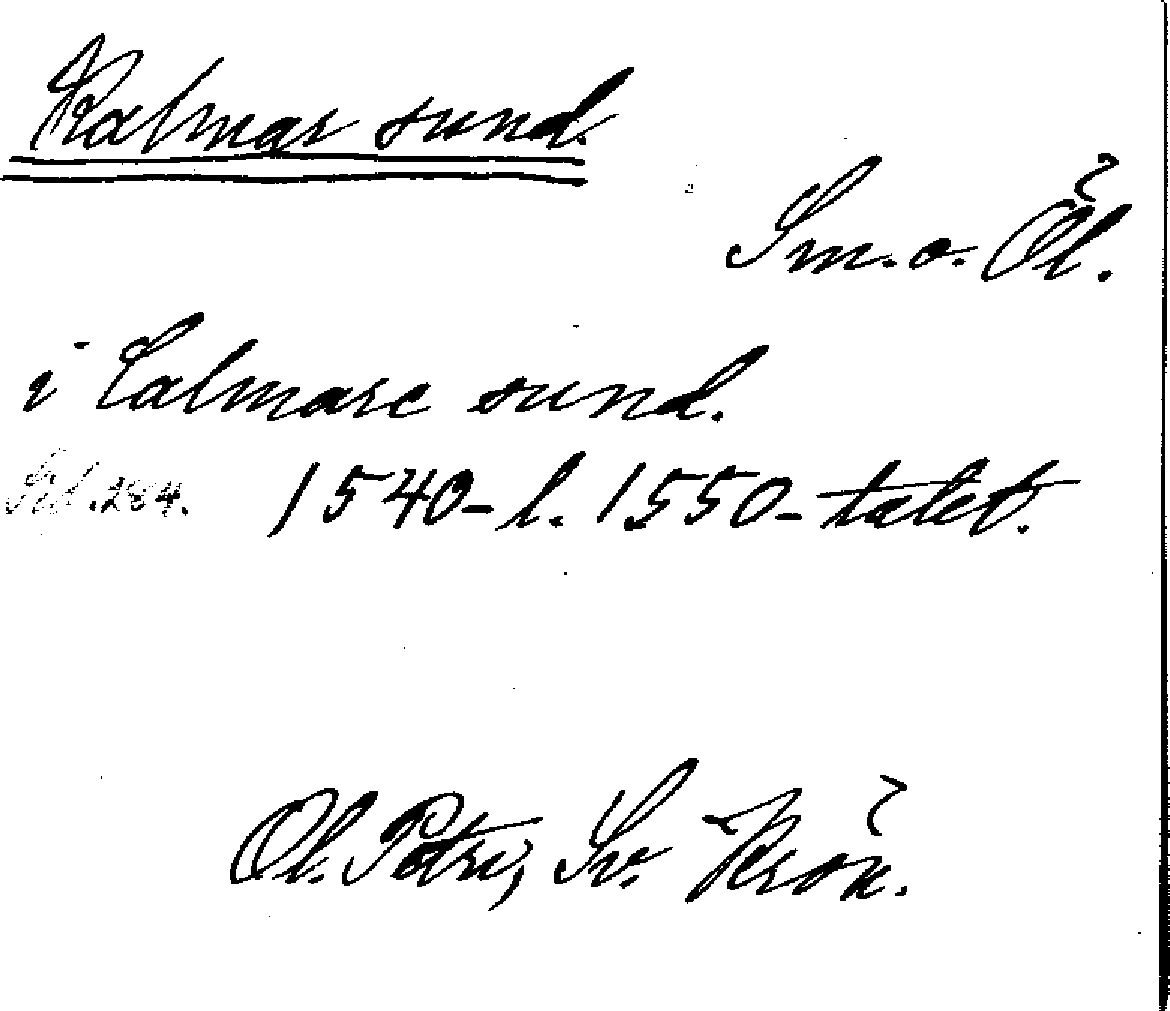 Kalmar sund.
Sm. o. Öl.
i Calmare sund.
Sid. 284. 1540- l. 1550-talet.
Ol. Petri, Sv. Krön.